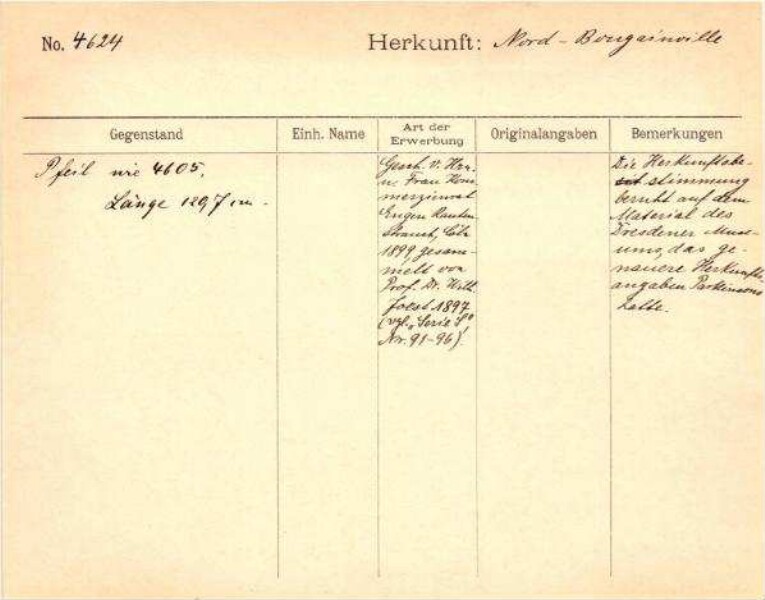 No. 4624
Herkunft: Nord-Bougainville
Gegenstand
Einh. Name
Art der
Erwerbung
Originalangaben
Bemerkungen
Pfeil wie 4605.
Länge 129,7 cm.
Gesch. v. Hrn.
u. Frau Kom-
merzienrat
Eugen Rauten-
strauch, Cöln
1899, gesam-
melt von
Prof. Dr. Wilh.
Joest 1897
(vgl. "Serie S"
Nr. 91-96).
Die Herkunftsbe-
stimmung
beruht auf dem
Material des
Dresdener Muse-
ums, das ge-
nauere Herkunfts-
angaben Parkinsons
hatte.